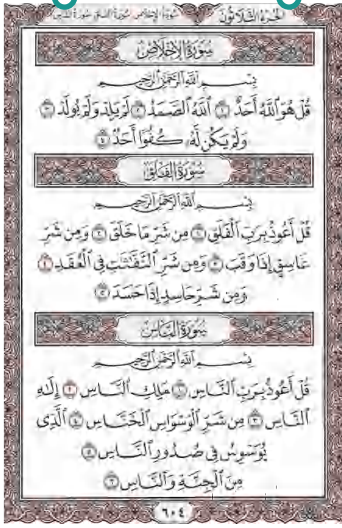 الجزء الثلاثون سورة الإخلاص سورة الفلق سورة الناس
سُورَةُ الإِخْلَاصِ
بِسْمِ اللَّهِ الرَّحْمَٰنِ الرَّحِيمِ
قُلْ هُوَ ٱللَّهُ أَحَدٌ ١ ٱللَّهُ ٱلصَّمَدُ ٢ لَمْ يَلِدْ وَلَمْ يُولَدْ ٣
وَلَمْ يَكُن لَّهُۥ كُفُوًا أَحَدٌۢ ٤
سُورَةُ الْفَلَقِ
بِسْمِ اللَّهِ الرَّحْمَٰنِ الرَّحِيمِ
قُلْ أَعُوذُ بِرَبِّ ٱلْفَلَقِ ١ مِن شَرِّ مَا خَلَقَ ٢ وَمِن شَرِّ
غَاسِقٍ إِذَا وَقَبَ ٣ وَمِن شَرِّ ٱلنَّفَّٰثَٰتِ فِى ٱلْعُقَدِ ٤
وَمِن شَرِّ حَاسِدٍ إِذَا حَسَدَ ٥
سُورَةُ النَّاسِ
بِسْمِ اللَّهِ الرَّحْمَٰنِ الرَّحِيمِ
قُلْ أَعُوذُ بِرَبِّ ٱلنَّاسِ ١ مَلِكِ ٱلنَّاسِ ٢ إِلَٰهِ
ٱلنَّاسِ ٣ مِن شَرِّ ٱلْوَسْوَاسِ ٱلْخَنَّاسِ ٤ ٱلَّذِى
يُوَسْوِسُ فِى صُدُورِ ٱلنَّاسِ ٥
مِنَ ٱلْجِنَّةِ وَٱلنَّاسِ ٦
٦٠٤